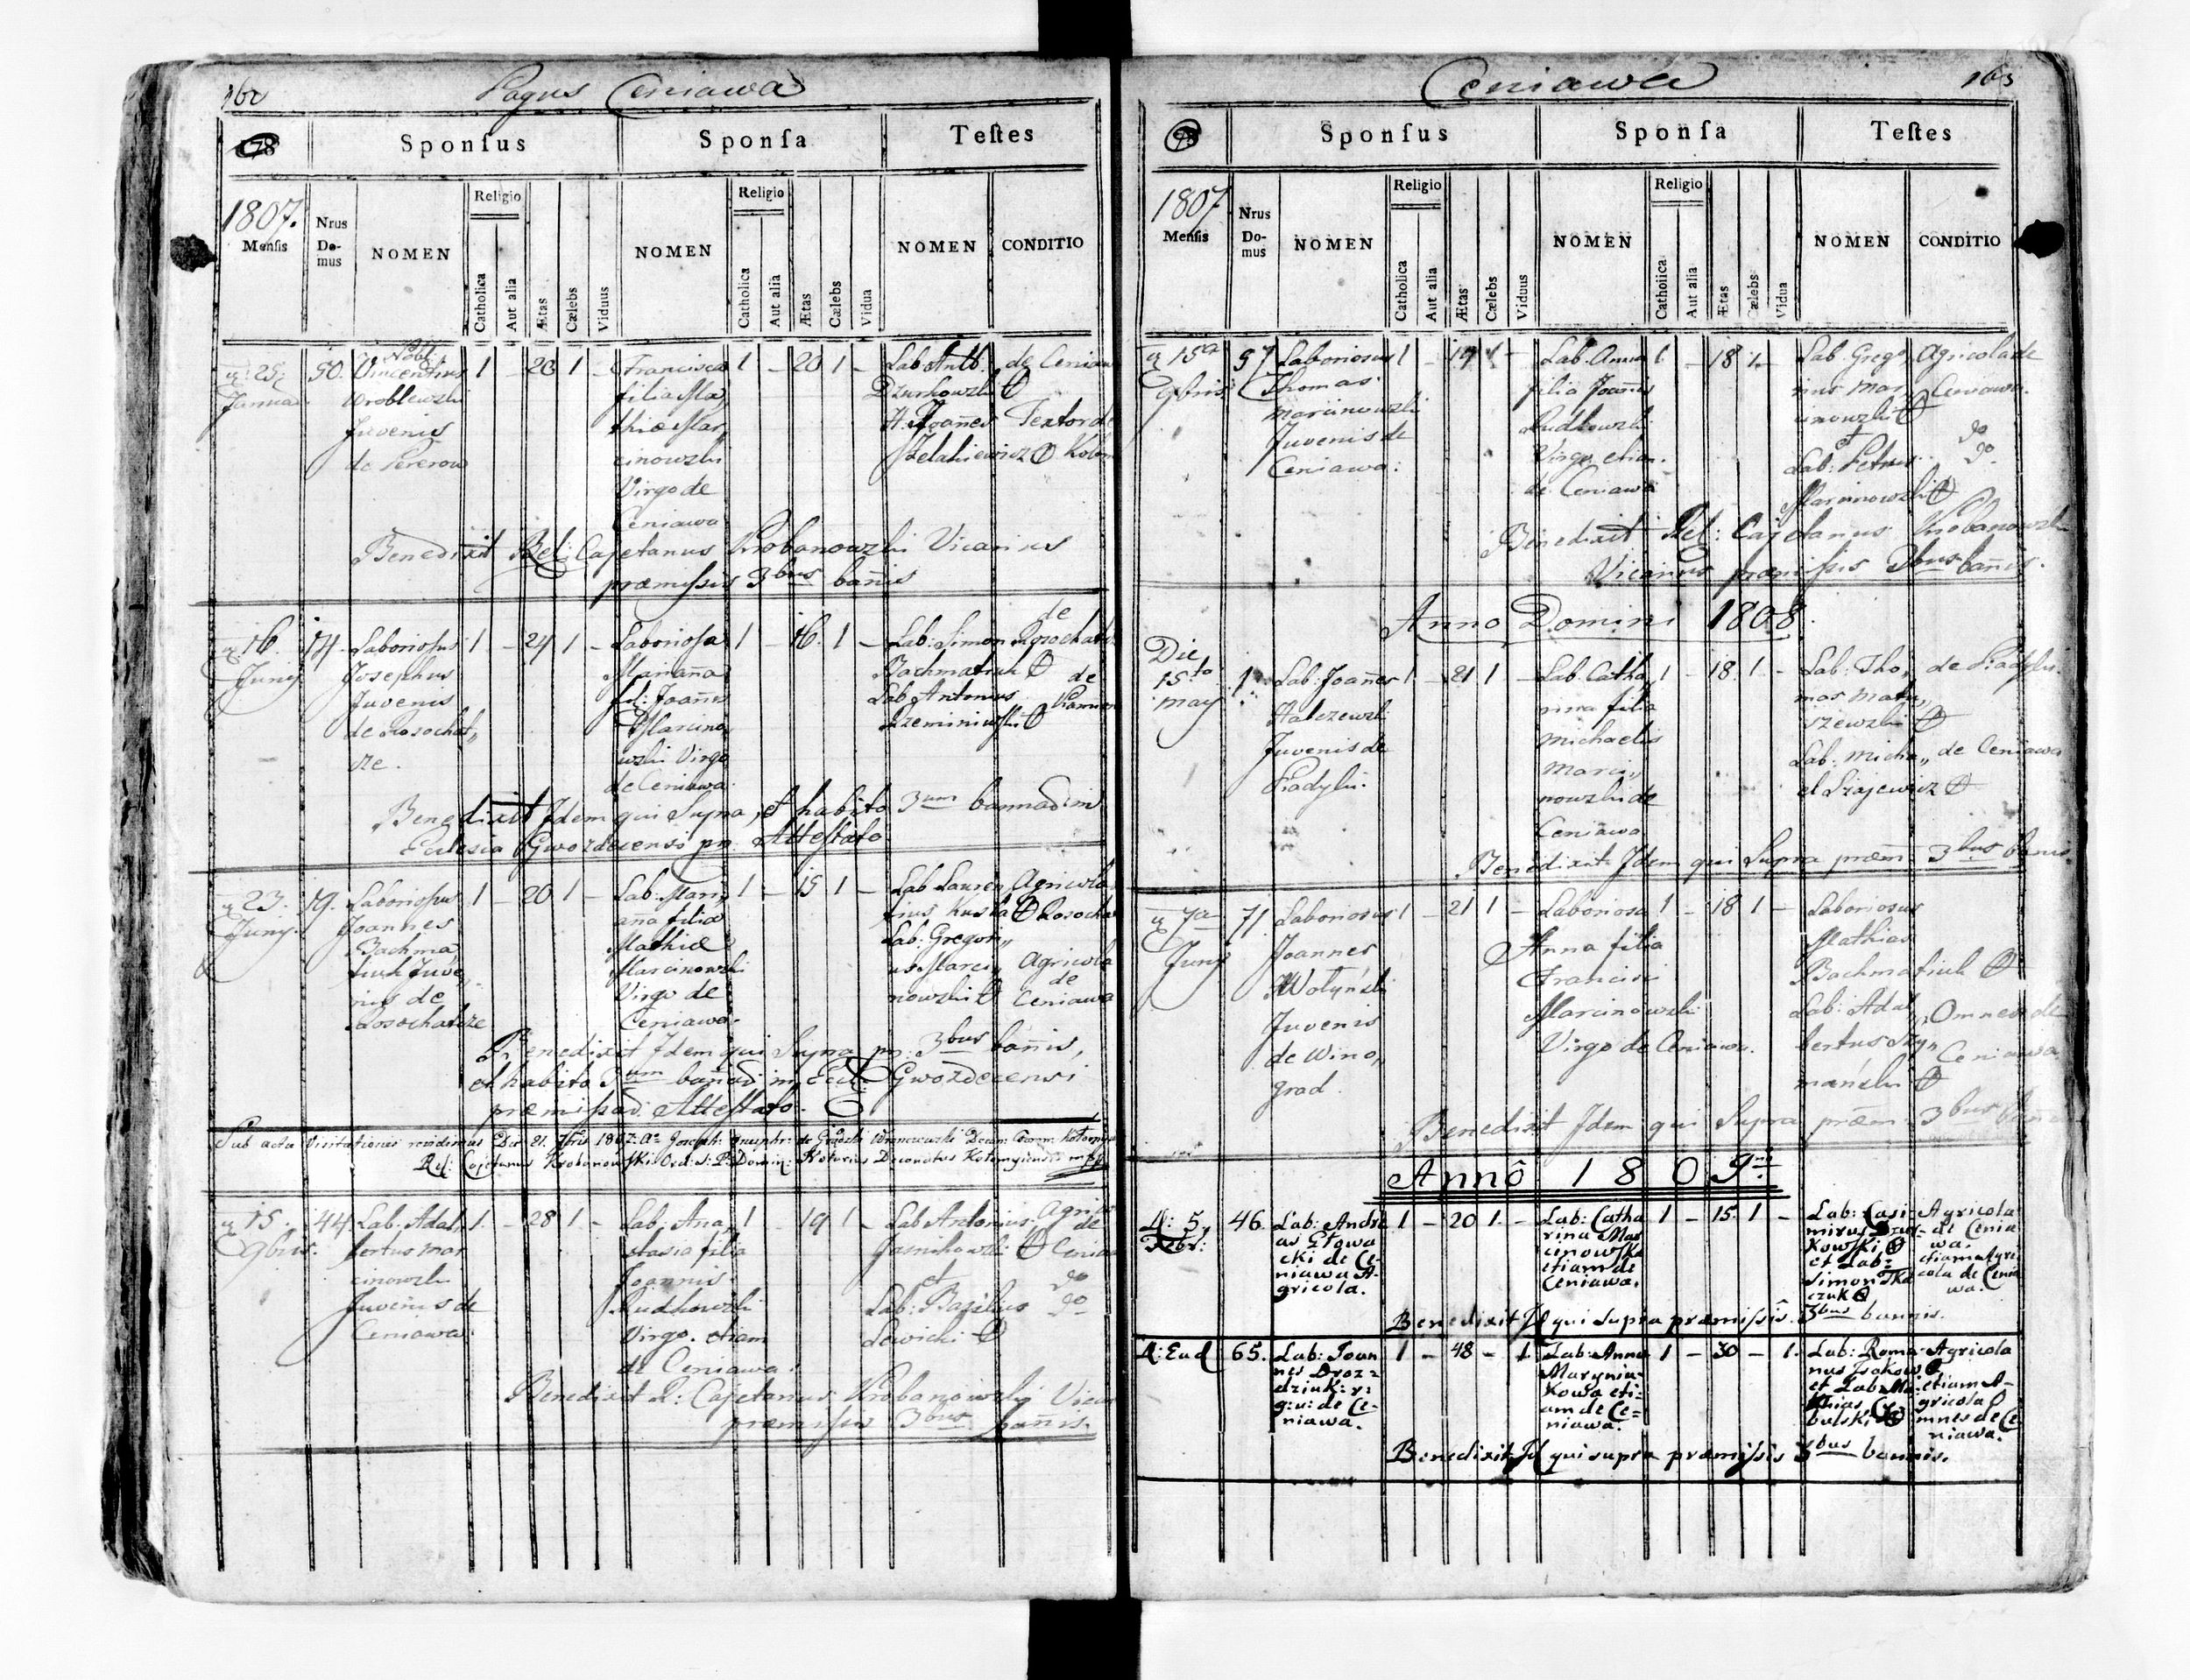 160
Pagus Ceniawa
Sponſus
Sponſa
Teſtes
1807.
Menſis
Nrus
Do-
mus
NOMEN
Religio
Catholica
Aut alia
Ætas
Cælebs
Viduus
NOMEN
Religio
Catholica
Aut alia
Ætas
Cælebs
Vidua
NOMEN
CONDITIO
25.
Januar.
50.
Nobl:
Vincentius
Wroblewski
Juvenis
de Pererow
1 - 20 1 -
Francisca
filia Ma,,
thiæ Mar,,
cinowski
Virgo de
Ceniawa
1 - 20 1 -
Lab. Antb.
Dzurkowski
Joañes
de Ceniaw
Textor de
Benedixit Rel: Cajetanus Krobanowzki Vicarius
præmiſsis 3bus bañis
16.
Juny
14.
Laboriosus
Josephus
Juvenis
de Rosochat,,
sze.
1 - 24 1 -
Laboriosa
Mariaña
fil: Joañis
Marcino,,
wski Virgo
de Ceniawa
1 - 16. 1 -
Lab: Simon
Bachmatiuk
Lab: Antonius
de
Rosochat
de
Benedixit Idem qui Supra, et habito 3um bannad in
Eclesia Gwozdecensi pr. Atteſtato
23.
Juny.
19.
Laboriosus
Joannes
Bachma
tiuk Juve,,
nis de
Rosochatsze
1 - 20 1 -
Lab: Mari,,
ana filia
Mathiæ
Marcinowski
Virgo de
Ceniawa.
1 - 15 1 -
Lab Lauren
tius Kusba
Lab: Gregori,,
us Marci,,
nowski
Agricola
Rosocha
Agricola
de
Ceniawa
Benedixit Idem qui Supra pr: 3bus bañis,
et habito 3um bañad in Ecl: Gwozdecensi
præmiſsad. Atteſtato.
Sub acta Visitationis
Rel: Cajetanus Krobanowſki Ord: S: P: Domin: Notarius Decanatus Kolomyiensis mpp
15.
9bris.
44
Lab: Adal
bertus Mar
cinowzki
Juvenis de
Ceniawa.
1. - 28 1. -
Lab: Ana,,
stasia filia
Joannis
Rudkowski
Virgo. etiam
de Ceniawa.
1 - 19 1 -
Lab Antonius
Janikowski
et
Lab: Basilius
Lewicki
Agricol
de
Ceniaw
do
do
Benedixit R: Cajetanus Krobanowski Vicar
præmiſsis 3bus bañis.
Ceniawa
163
Sponſus
Sponſa
Teſtes
1807
Menſis
Nrus
Do-
mus
NOMEN
Religio
Catholica
Aut alia
Ætas
Cælebs
Viduus
NOMEN
Religio
Catholica
Aut alia
Ætas
Cælebs
Vidua
NOMEN
CONDITIO
15a
9bris
57
Laboriosus
Thomas
Marcinowski
Juvenis de
Ceniawa:
1 - 19 1 -
Lab. Anna
filia Joañis
Rudkowski
Virgo etiam
de Ceniawa
1. - 18 1.
Lab. Grego,,
rius Mar,,
cinowzki
et
Lab: Petrus
Marcinowzki
Agricola de
Ceniawa.
do
do
Benedixit Rel: Cajetanus Krobanowzki
Vicarius præmiſsis 3bus bañis.
Anno Domini 1808.
Die
15ta
may
1
Lab: Joañes
Halczewzki
Juvenis de
Piadyki.
1 - 21 1
Lab. Catha
rina filia
Michaelis
Marci,,
nowzki de
Ceniawa
1 - 18 1 -
Lab: Tho,,
mas Matu,,
szewzki
Lab: Micha,,
el Szajewicz
de Piadyki.
de Ceniawa
Benedixit Idem qui Supra præm: 3bus banis
7a
Juny
71.
Laboriosus
Joannes
Wołyński
Juvenis
de Wino,,
grad.
1 - 21 1 -
Laboriosa
Anna filia
Francisci
Marcinowski
Virgo de Ceniawa.
1 - 18 1 -
Laboriosus
Mathias
Bachmatiuk
Lab: Adal,,
bertus Szy,,
mański
Omnes de
Ceniawa
Benedixit Idem qui Supra præm: 3bus
Annô 1809no.
5.
Febr:
46.
Lab: Andre
as Głowa
cki de Ce-
niawa A-
gricola.
1 - 20 1. -
Lab: Catha
rina Mar
cinowſka
etiam de
Ceniawa.
1 - 15. 1 -
Lab: Casi-
mirus
kowſki
et Lab:
Simon Tka
czuk
Agricola
de Cenia
wa.
etiam Agri
cola de Cenia
wa.
Benedixit Id qui supra præmiſsis. 3bus bannis.
Ead
65.
Lab: Joan
nes Droz=
dziuk: r:
g: u: de Ce-
niawa.
1 - 48 - 1.
Lab: Anna
Maryniu-
kowa eti-
am de Ce=
niawa.
1 - 30 - 1.
Lab: Roma-
nus
et Lab: Ma-
thias Cy
bulski
Agricola
etiam A-
gricola O
mnes de Ce
niawa.
Benedixit Id qui supra præmiſsis 3bus bannis.